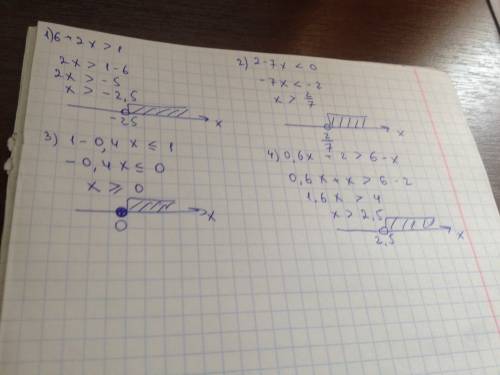 1) 6 + 2x > 1
2x > 1 - 6
2x > -5
x > -2,5
-2,5
x
2) 2 - 7x < 0
-7x < -2
x > 2/7
2/7
x
3) 1 - 0,4x ≤ 1
-0,4x ≤ 0
x ⩾ 0
0
x
4) 0,6x + 2 > 6 - x
0,6x + x > 6 - 2
1,6x > 4
x > 2,5
2,5
x